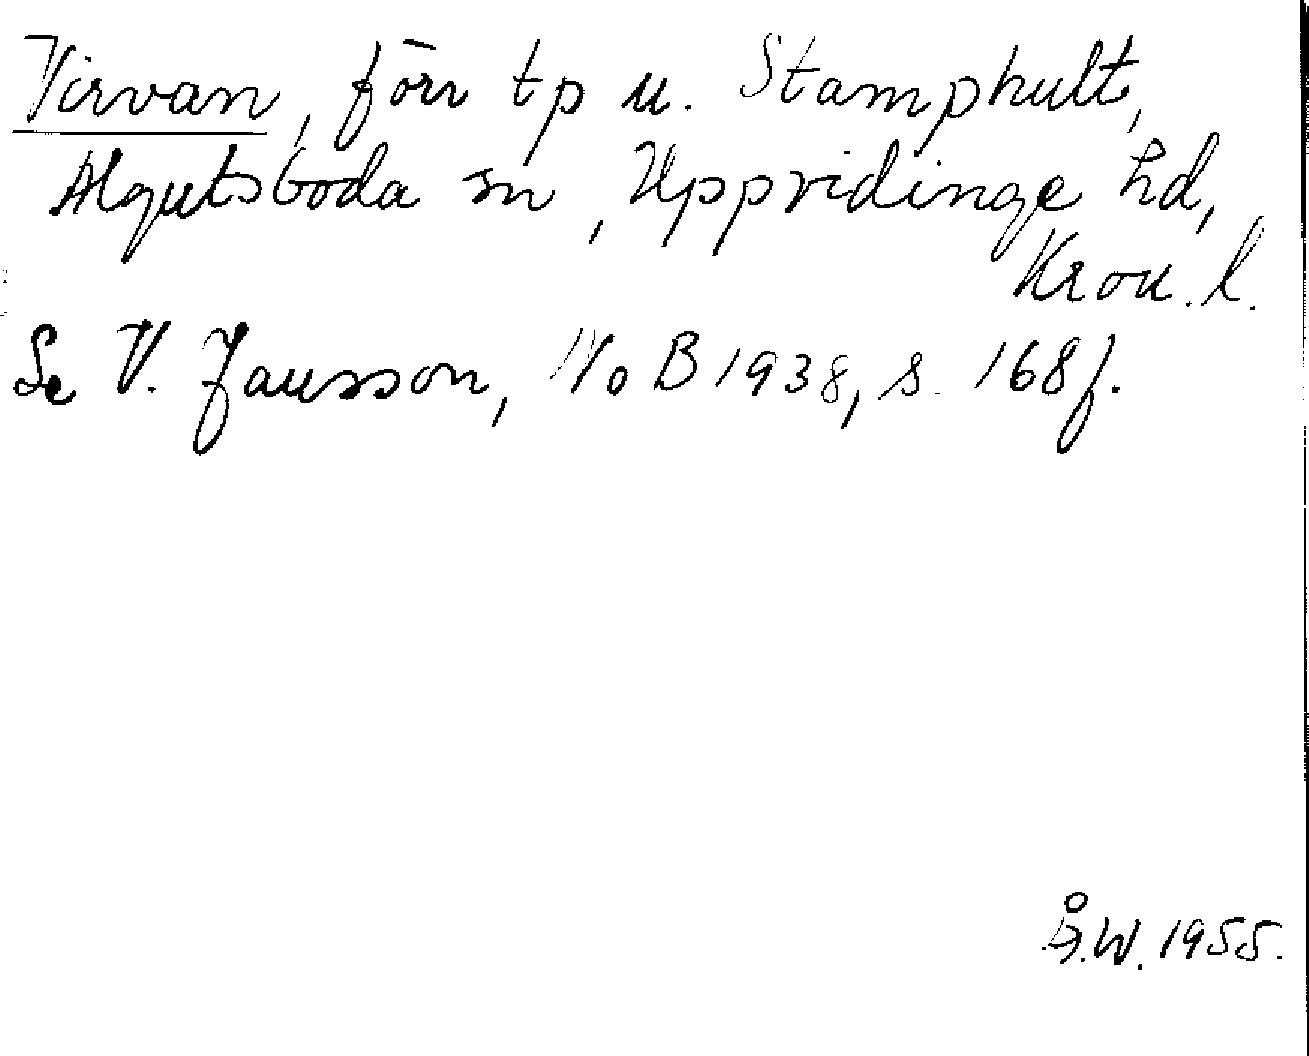 Virvan, förr tp u. Stamphult,
Algutsboda sn, Uppvidinge hd,
Kron. l.
Se V. Jansson, NoB 1938, s. 168 f.
Å.W. 1955.